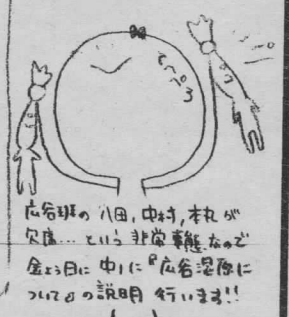 広谷班の 八田,中村,本丸が
欠席…という 非常事態なので
金よう日に 中1に『広谷湿原に
ついて』の説明 行います!!